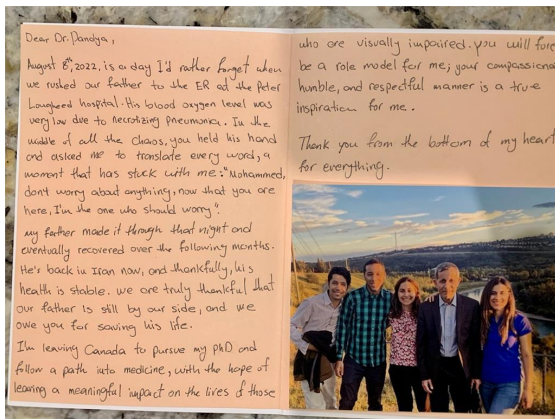 Dear Dr. Pandya,
August 8th, 2022, is a day I'd rather forget when
we rushed our father to the ER at the Peter
Lougheed hospital. His blood oxygen level was
very low due to necrotizing pneumonia. In the
middle of all the chaos, you held his hand
and asked me to translate every word, a
moment that has stuck with me: "Mohammed,
don't worry about anything, now that you are
here, I'm the one who should worry".
My father made it through that night and
eventually recovered over the following months.
He's back in Iran now, and thankfully, his
health is stable. we are truly thankful that
our father is still by our side, and we
owe you for saving his life.
I'm leaving Canada to pursue my PhD and
follow a path into medicine, with the hope of
leaving a meaningful impact on the lives of those
who are visually impaired. you will
be a role model for me; your
humble, and respectful manner is a true
inspiration for me.
Thank you from the bottom of my heart
for everything.